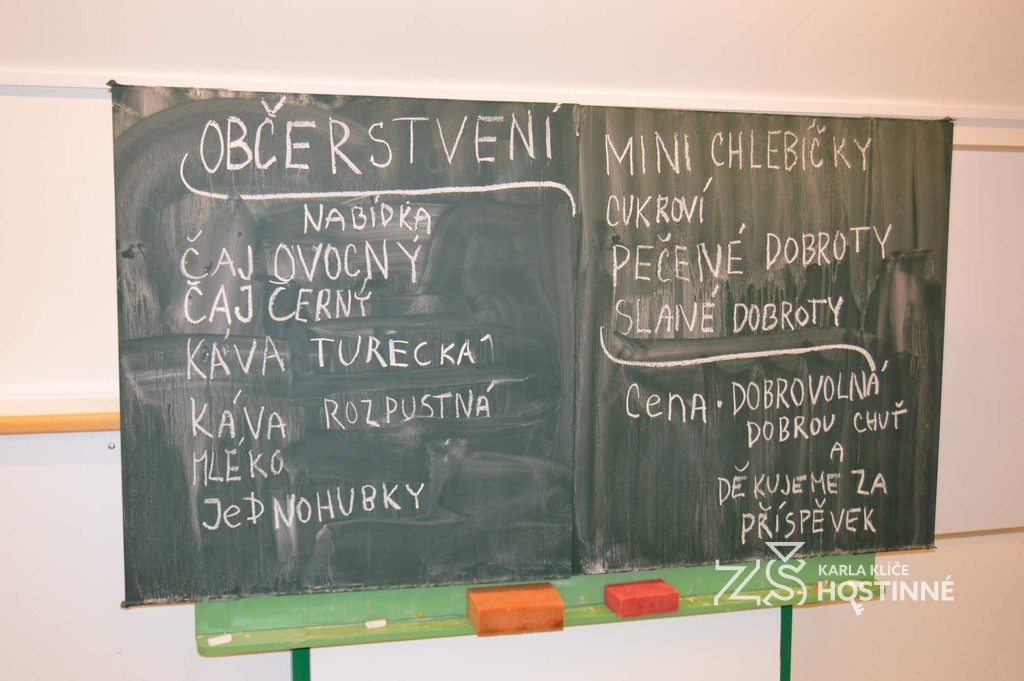 OBČERSTVENÍ
NABÍDKA
ČAJ OVOCNÝ
ČAJ ČERNÝ
KÁVA TURECKÁ
KÁVA ROZPUSTNÁ
MLÉKO
JeDNOHUBKY
MINI CHLEBÍČKY
CUKROVÍ
PEČENÉ DOBROTY
SLANÉ DOBROTY
CeNA · DOBROVOLNÁ
DOBROU CHUŤ
A
DĚKUJEME ZA
PŘÍSPĚVEK
ZŠ KARLA KLÍČE
HOSTINNÉ